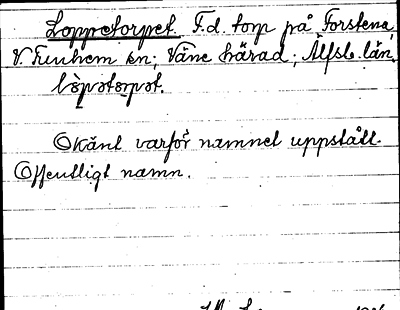 Loppetorpet. F.d. torp på Forstena,
V. Tunhem sn; Väne härad; Älfsb. län.
Okänt varför namnet uppstått.
Offentligt namn.